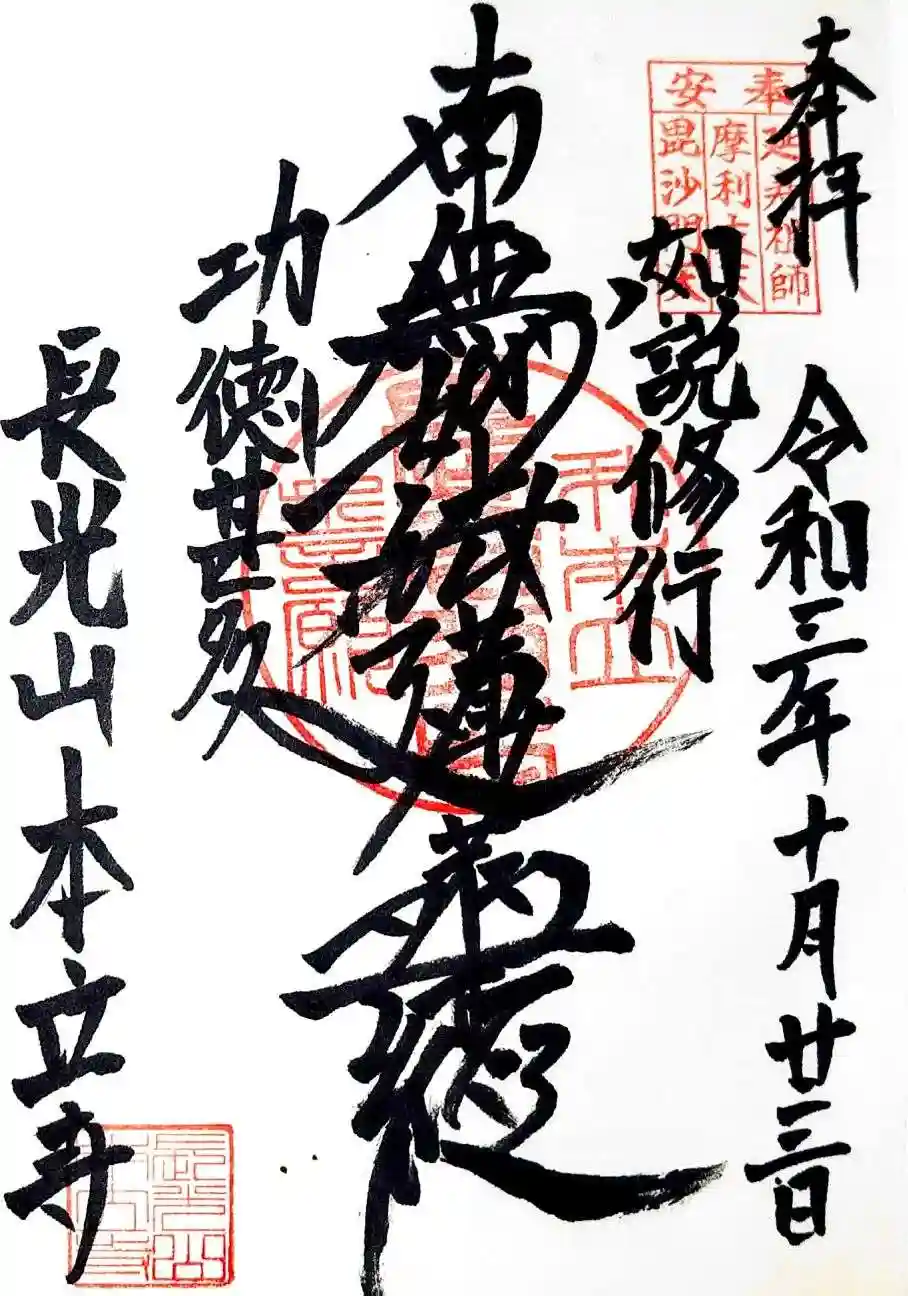 奉拝
令和三年十月廿三日
奉安
祖師
摩利支天
毘沙門天
如説修行
南無妙法蓮華経
功徳甚多
長光山本立寺
長光山
本立寺